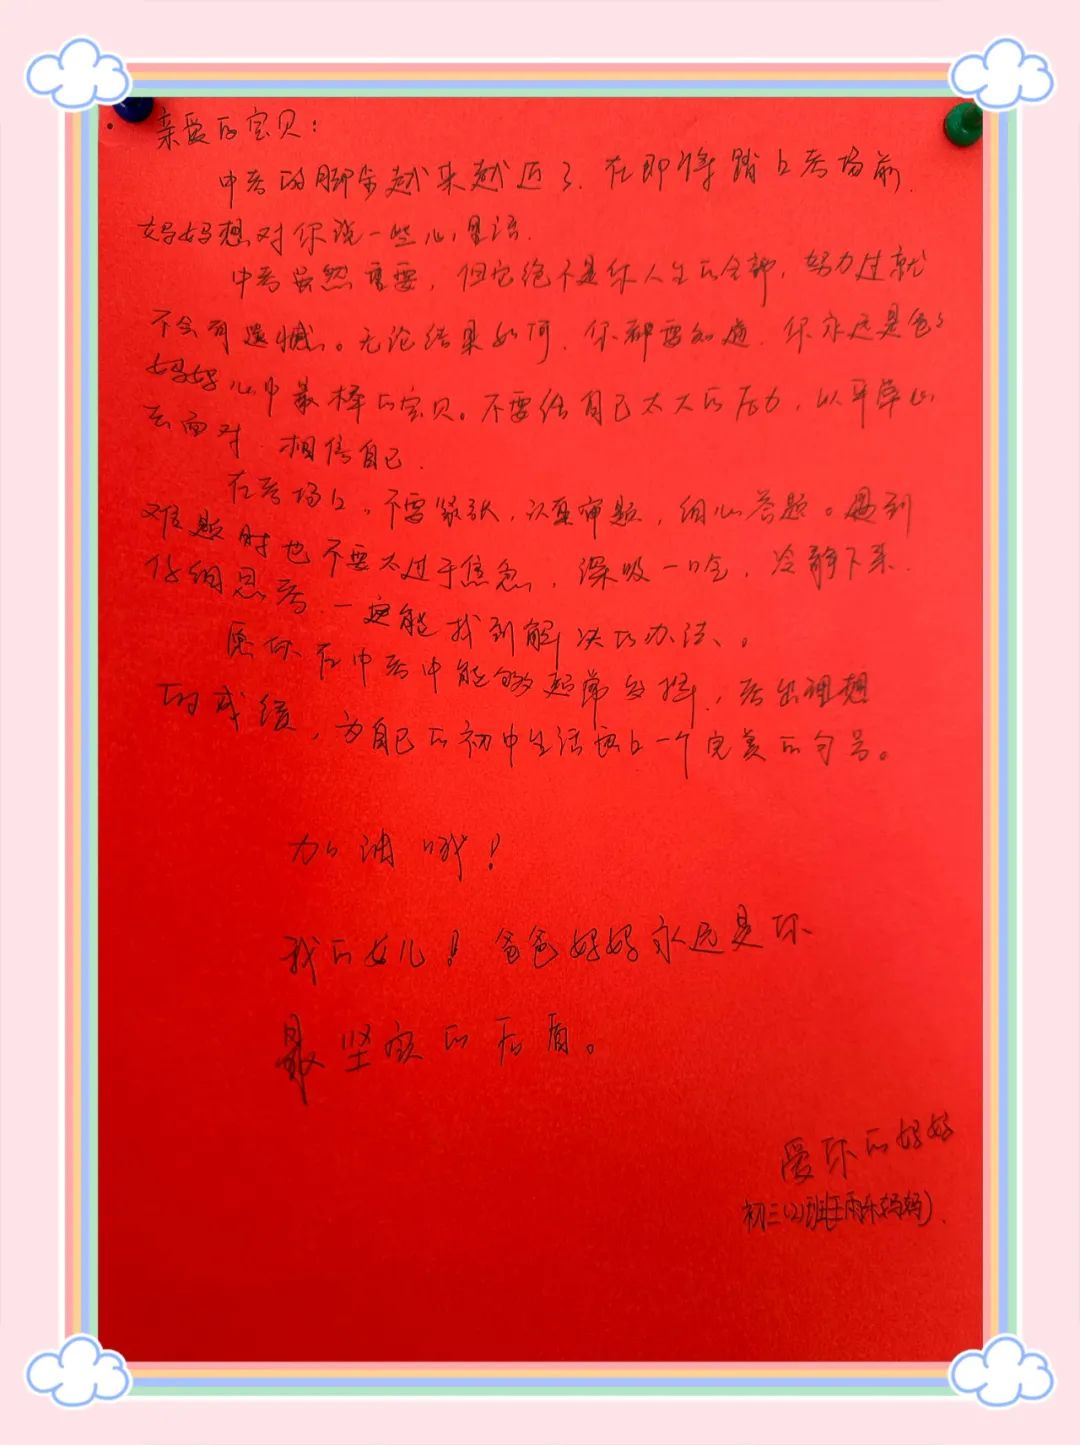 亲爱的宝贝：
中考的脚步越来越近了．在即将踏上考场前．
妈妈想对你说一些心里话．
中考虽然重要，但它绝不是你人生的全部，努力过就
不会有遗憾。无论结果如何．你都要知道．你永远是爸爸
妈妈心中最棒的宝贝。不要给自己太大的压力，以平常心
去面对．相信自己．
在考场上，不要紧张，认真审题，细心答题。遇到
难题时也不要太过于焦急，深吸一口气，冷静下来．
仔细思考．一定能找到解决的办法。
愿你在中考中能够超常发挥，考出理想
的成绩，为自己的初中生活画上一个完美的句号。
加油哦！
我的女儿！爸爸妈妈永远是你
最坚实的后盾。
爱你的妈妈
初三(2)班王雨乐妈妈）．